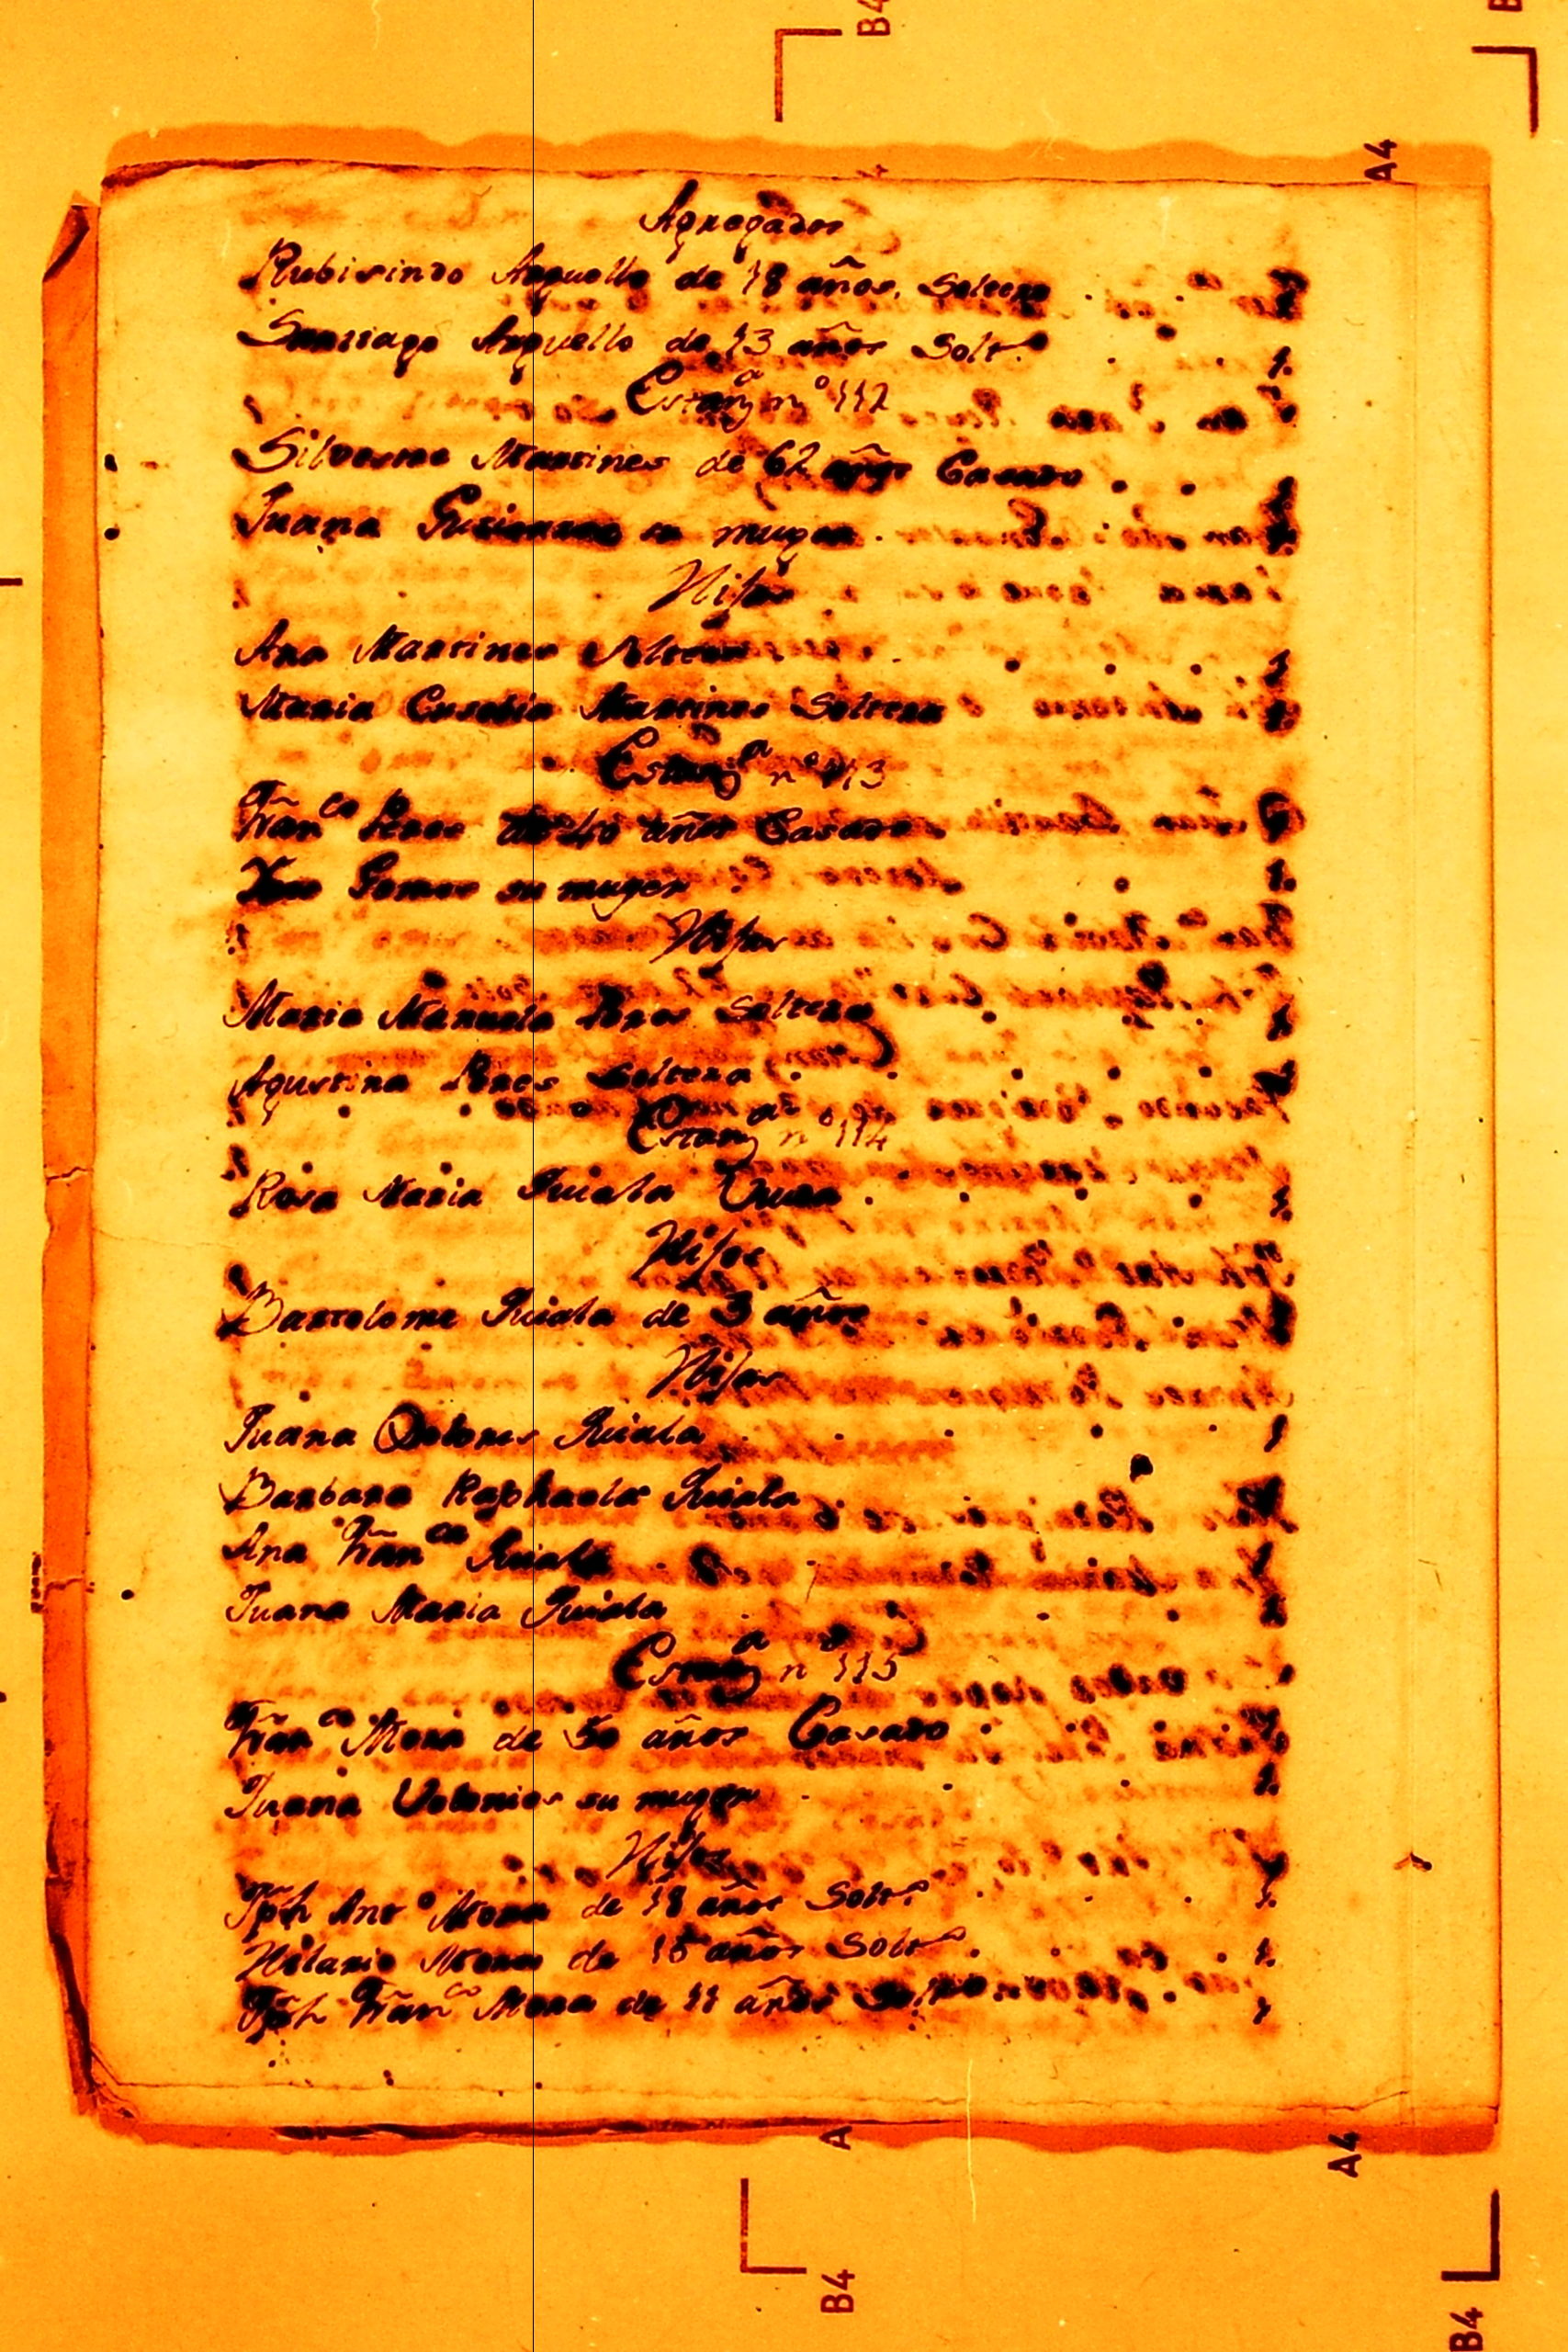 Agregados
Rubisindo Arguello de 18 años. Soltero 1
Santiago Arguello de 13 años Solt.º 1.
Estanª nº 112
Silvestre Martines de 62 años Casado 1
Juana su muger 1
Hijas
Ana Martines Soltera 1
Maria Eusebia Martines Soltera 1
Estanª nº 113
Franco Peres de 40 años Casado 1
Gomes su muger 1
Hijas
Maria Manuela Peres Soltera 1
Agustina Peres Soltera 1
Estanª nº 114
Rosa Maria Viuda 1
Hijos
Bartolome de 3 años 1
Hijas
Juana Dolores 1
Barbara Raphaela 1
Ana Franca 1
Juana Maria 1
Estanª nº 115
Franco Mora de 50 años Casado 1
Juana su muger 1.
Hijos
Jph Antº Mora de 18 años Solt.º 1.
Hilario Mora de 15 años Solt.º 1.
Jph Franco Mora de 11 años 1
B4
A4
A
A4
B4
B4